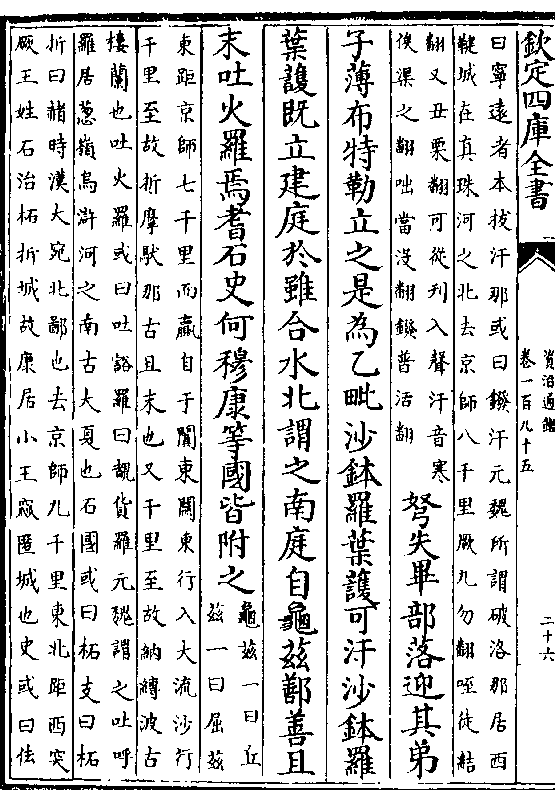 欽定四庫全書
資治通鑑
卷一百九十五
二十六
曰寧遠者本拔汗那或曰鏺汗元魏所謂破洛那居西
鞬城在真珠河之北去京師八千里厥九勿翻咥徒結
翻又丑栗翻可從刋入聲汗音寒
俟渠之翻咄當沒翻鏺普活翻
弩失畢部落迎其弟
子薄布特勒立之是為乙毗沙鉢羅葉護可汗沙鉢羅
葉護既立建庭於雖合水北謂之南庭自龜兹鄯善且
末吐火羅焉耆石史何穆康等國皆附之
龜兹一曰丘
兹一曰屈兹
東距京師七千里而贏自于闐東關東行入大流沙行
千里至故折摩馱那古且末也又千里至故納縛波古
樓蘭也吐火羅或曰吐豁羅曰覩貨羅元魏謂之吐呼
羅居葱嶺烏滸河之南古大夏也石國或曰柘支曰柘
折曰赭時漢大宛北鄙也去京師九千里東北距西突
厥王姓石治柘折城故康居小王窳匿城也史或曰佉